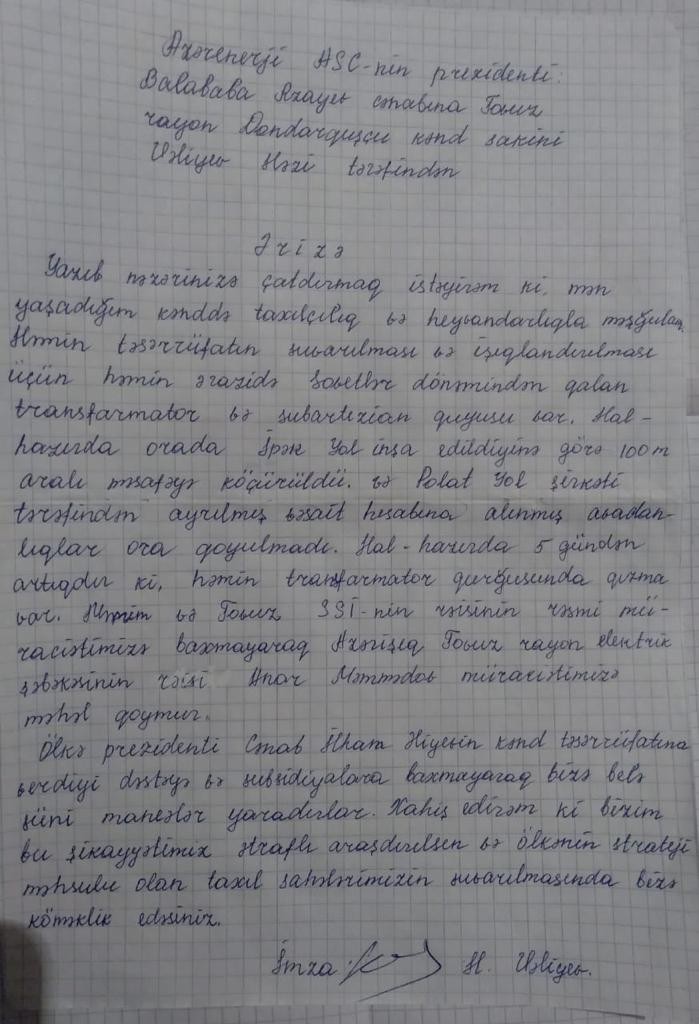 Azərenerji ASC-nin prezidenti:
Balababa Rzayev cənabına Tovuz
rayon Dondarquşçu kənd sakini
Vəliyev Həzi tərəfindən
Ərizə
Yazıb nəzərinizə çatdırmaq istəyirəm ki, mən
yaşadığım kənddə taxılçılıq və heyvandarlıqla məşğulam.
Həmin təsərrüfatın suvarılması və işıqlandırılması
üçün həmin ərazidə Sovetlər dönəmindən qalan
transfarmator və subartezian quyusu var. Hal-
hazırda orada İpək Yol inşa edildiyinə görə 100 m
aralı məsafəyə köçürüldü. və Polat Yol şirkəti
tərəfindən ayrılmış vəsait hesabına alınmış avadan-
lıqlar ora qoyulmadı. Hal-hazırda 5 gündən
artıqdır ki, həmin transfarmator qurğusunda qızma
var. Mənim və Tovuz SSİ-nin rəisinin rəsmi mü-
raciətimizə baxmayaraq Azərişıq Tovuz rayon elektrik
şəbəkəsinin rəisi Anar Məmmədov müraciətimizə
məhəl qoymur.
Ölkə prezidenti Cənab İlham Əliyevin kənd təsərrüfatına
verdiyi dəstəyə və subsidiyalara baxmayaraq bizə belə
süni maneələr yaradırlar. Xahiş edirəm ki bizim
bu şikayyətimiz ətraflı araşdırılsın və ölkənin strateji
məhsulu olan taxıl sahələrimizin suvarılmasında bizə
köməklik edəsiniz.
İmza: H. Vəliyev.